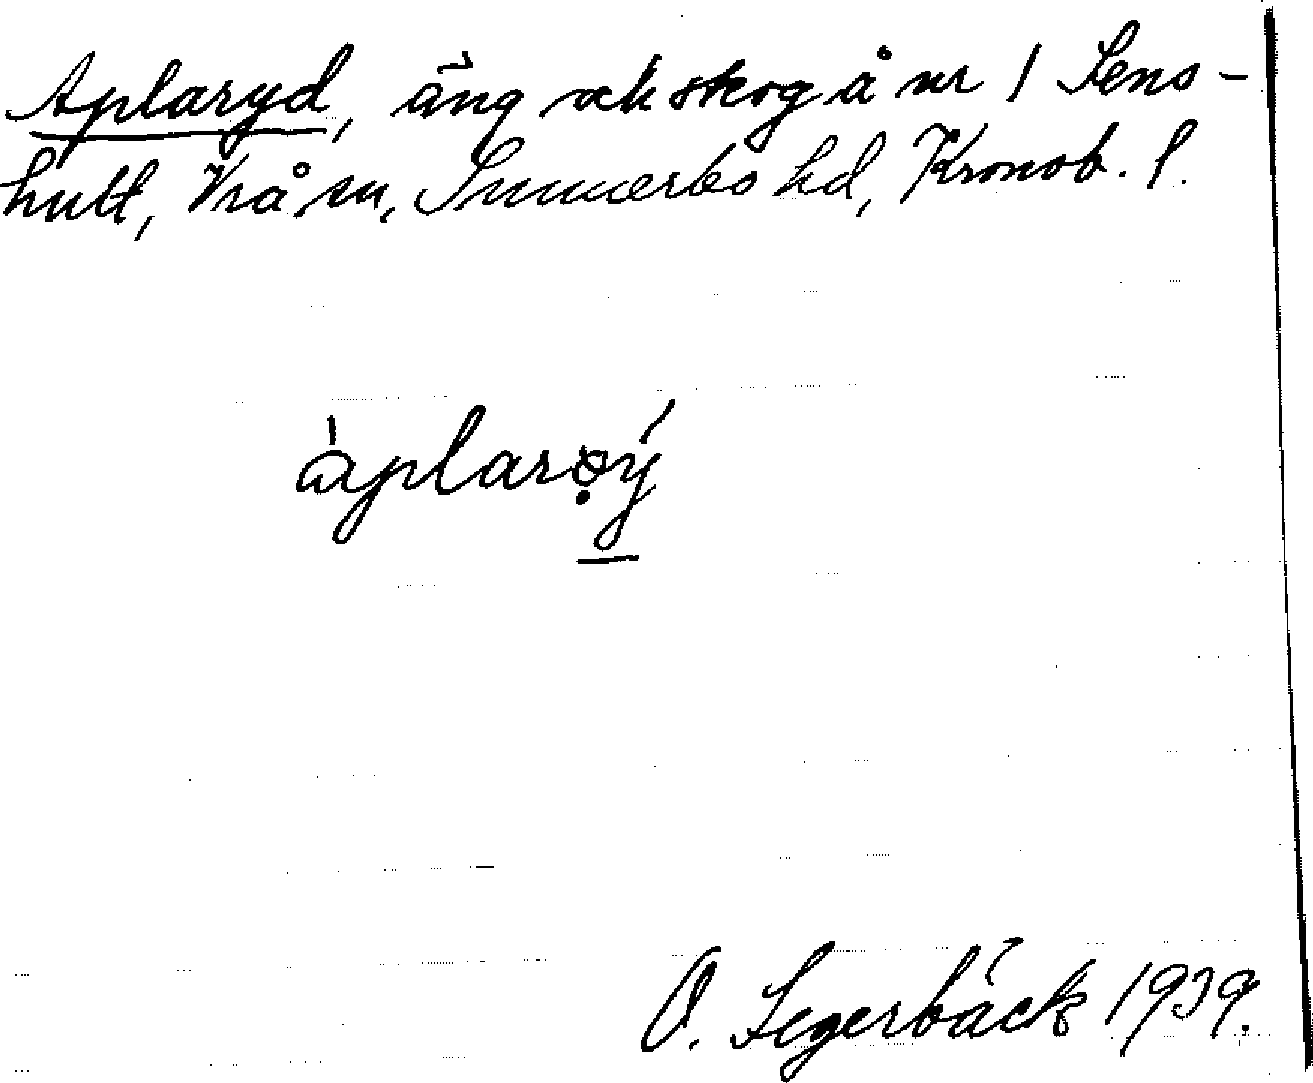 Aplaryd, äng och skog å nr 1 Sens-
hult, Vrå sn, Sunnerbo hd, Kronob. l.
àplarọý
O. Segerbäck 1939.